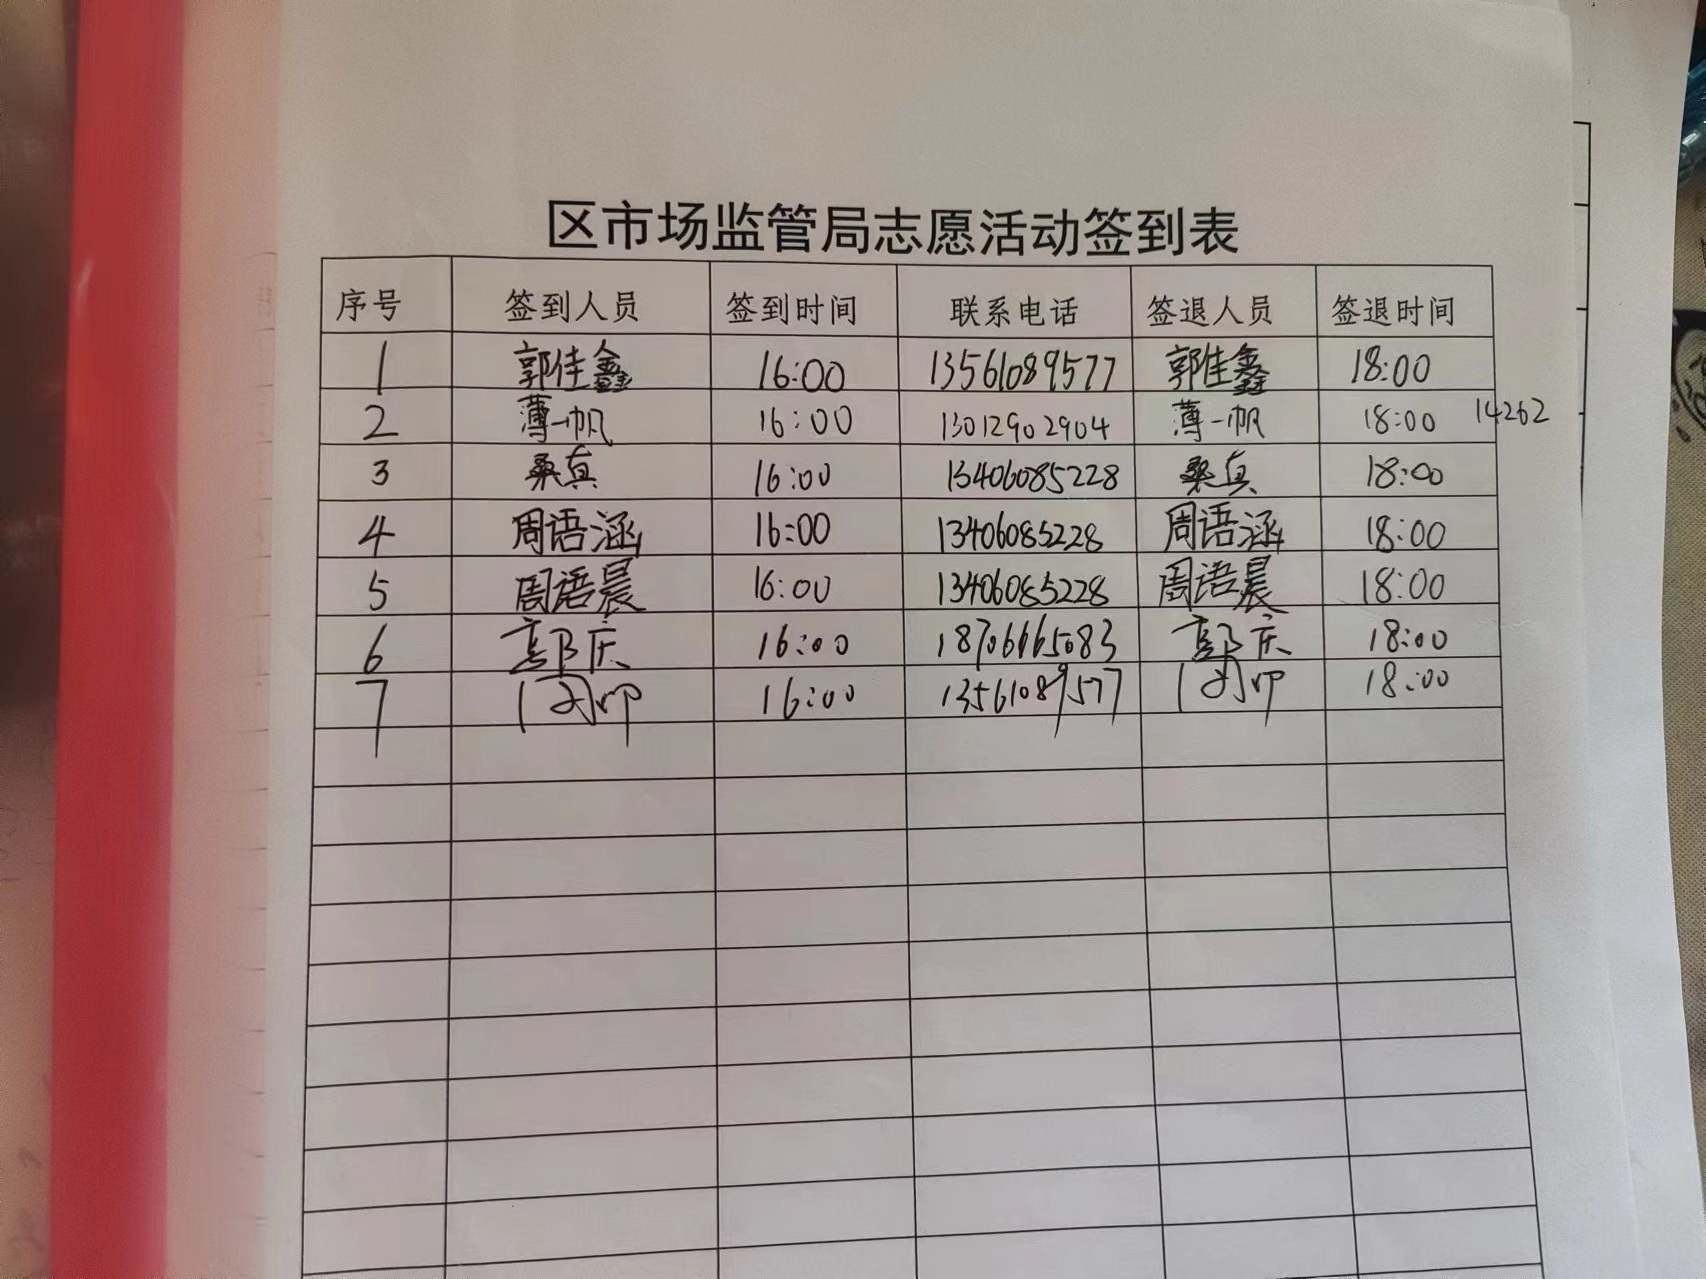 区市场监管局志愿活动签到表
序号 签到人员 签到时间 联系电话 签退人员 签退时间
1 郭佳鑫 16:00 13561089577 郭佳鑫 18:00
2 薄一帆 16:00 13012902904 薄一帆 18:00 14262
3 桑真 16:00 13406085228 桑真 18:00
4 周语涵 16:00 13406085228 周语涵 18:00
5 周语晨 16:00 13406085228 周语晨 18:00
6 郭庆 16:00 18706665083 郭庆 18:00
7 16:00 13561089577 18:00